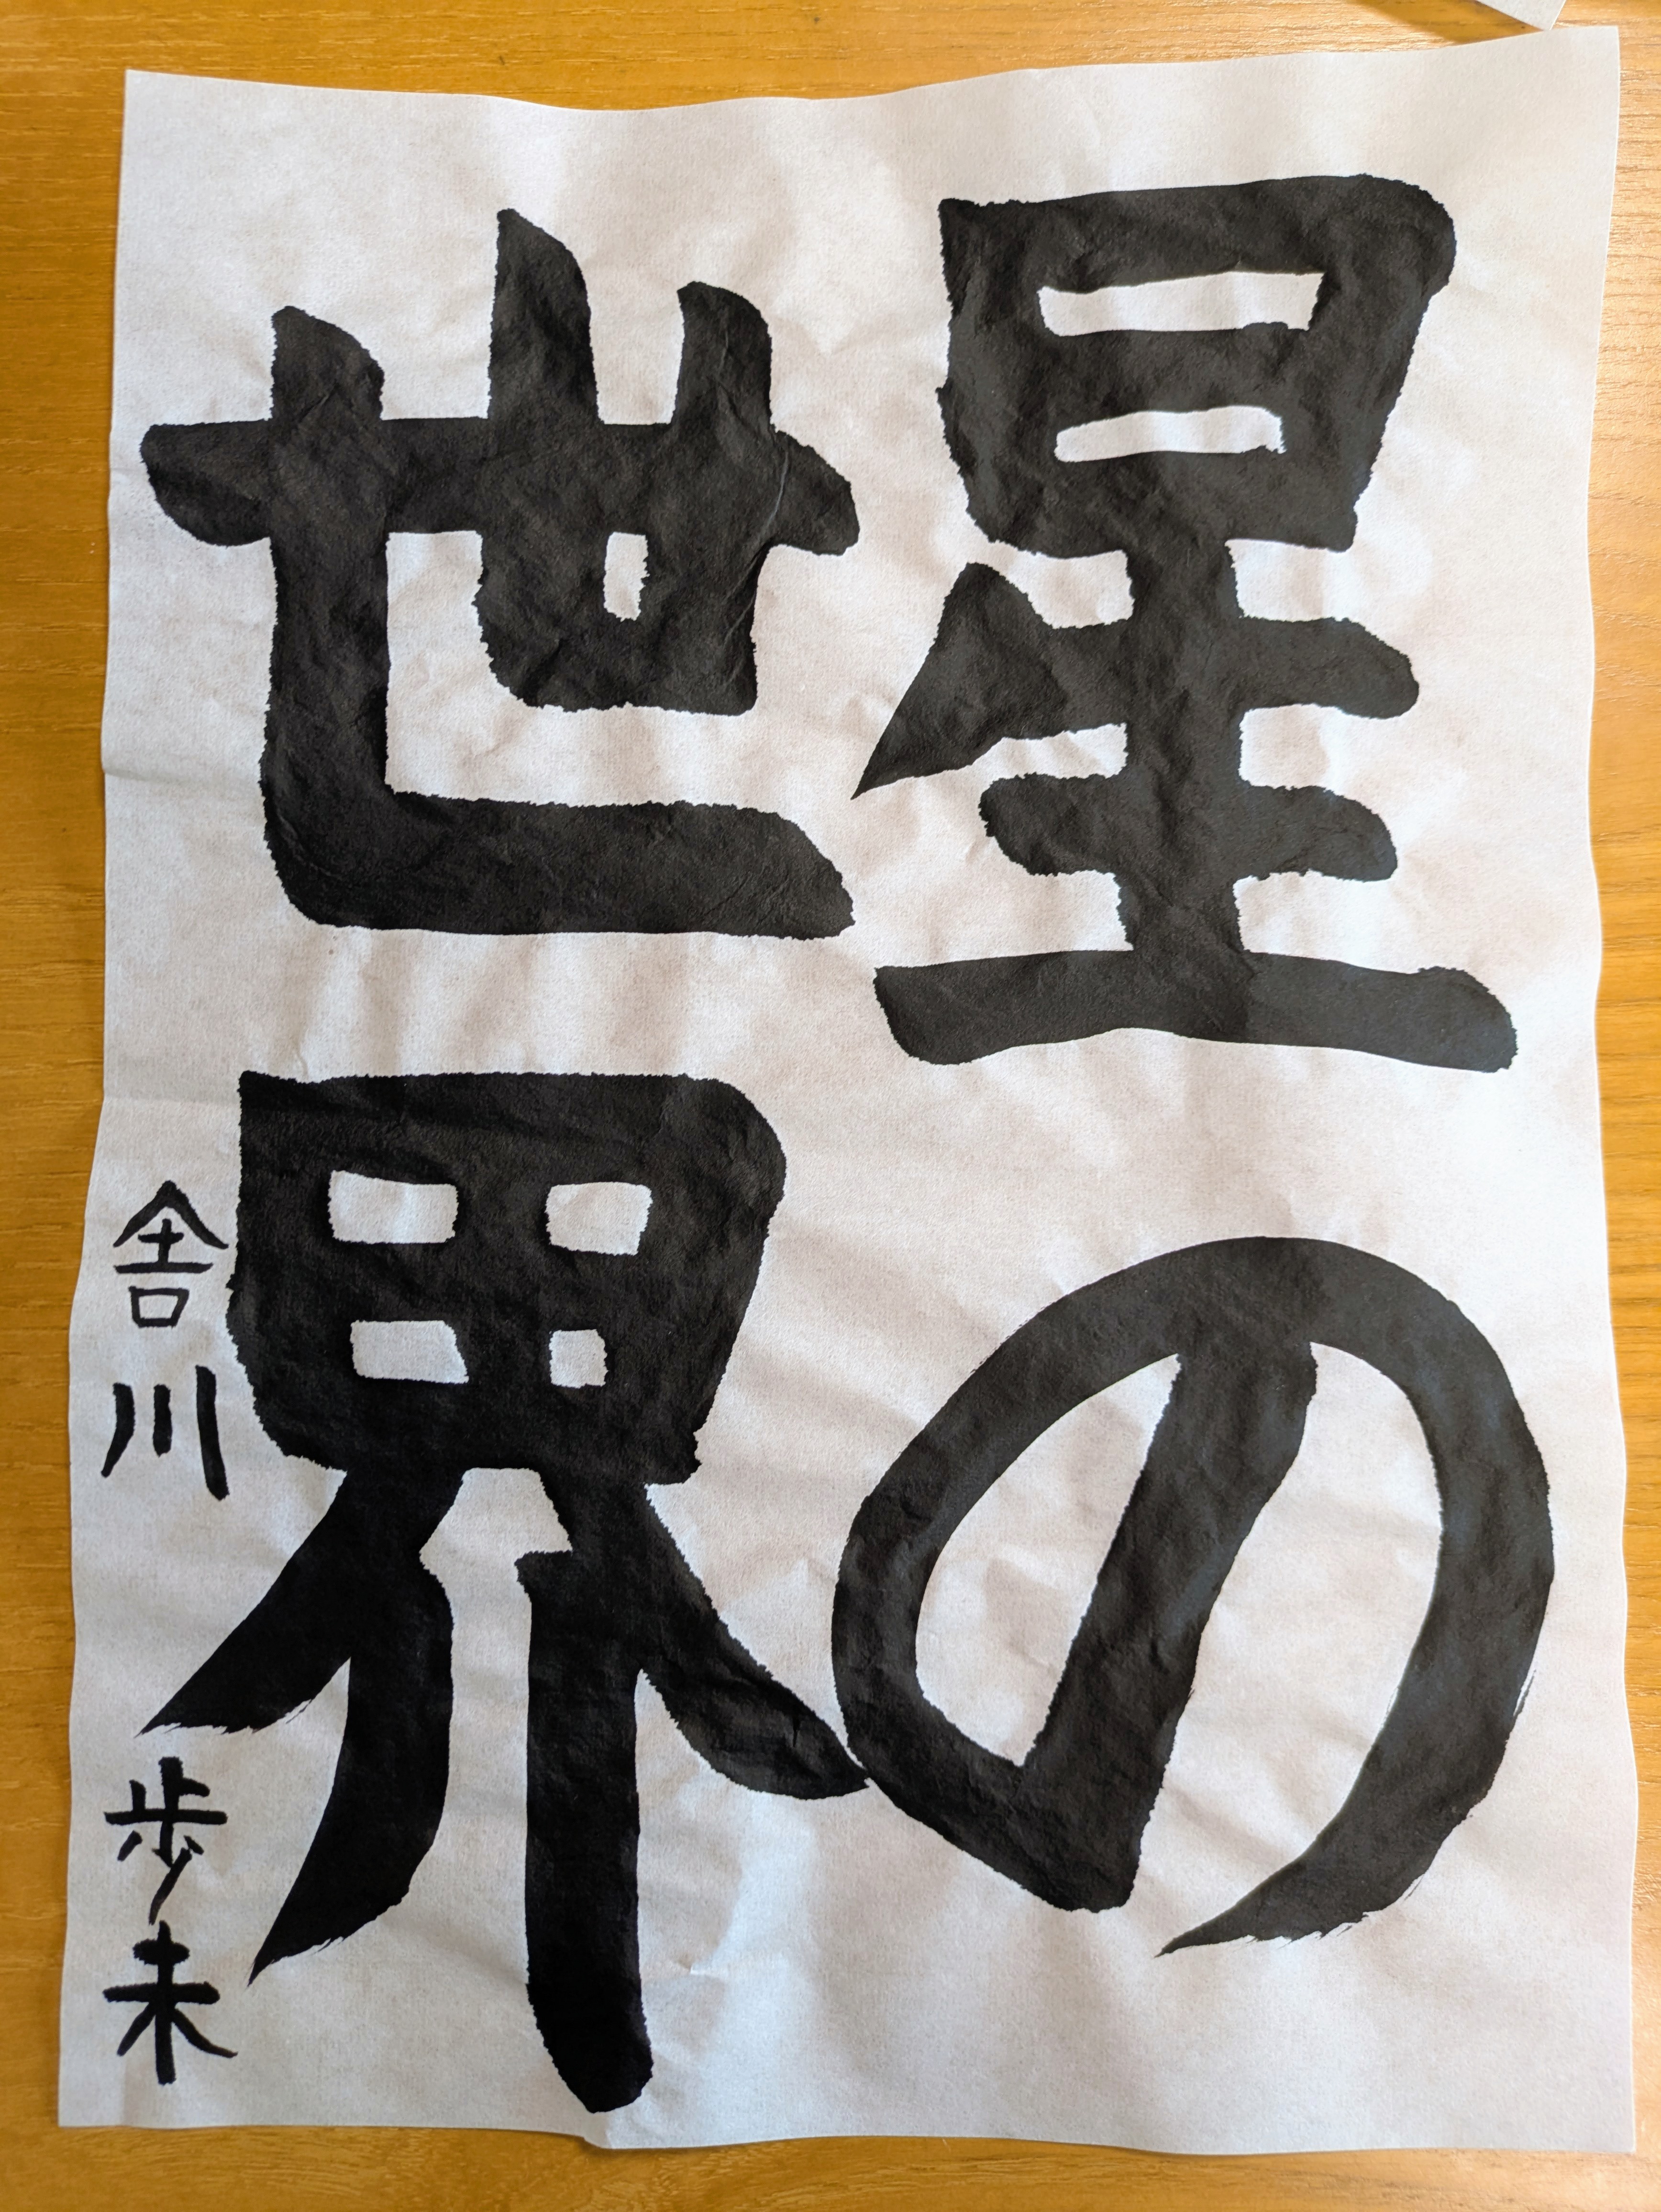 星の
世界
舎川 歩未